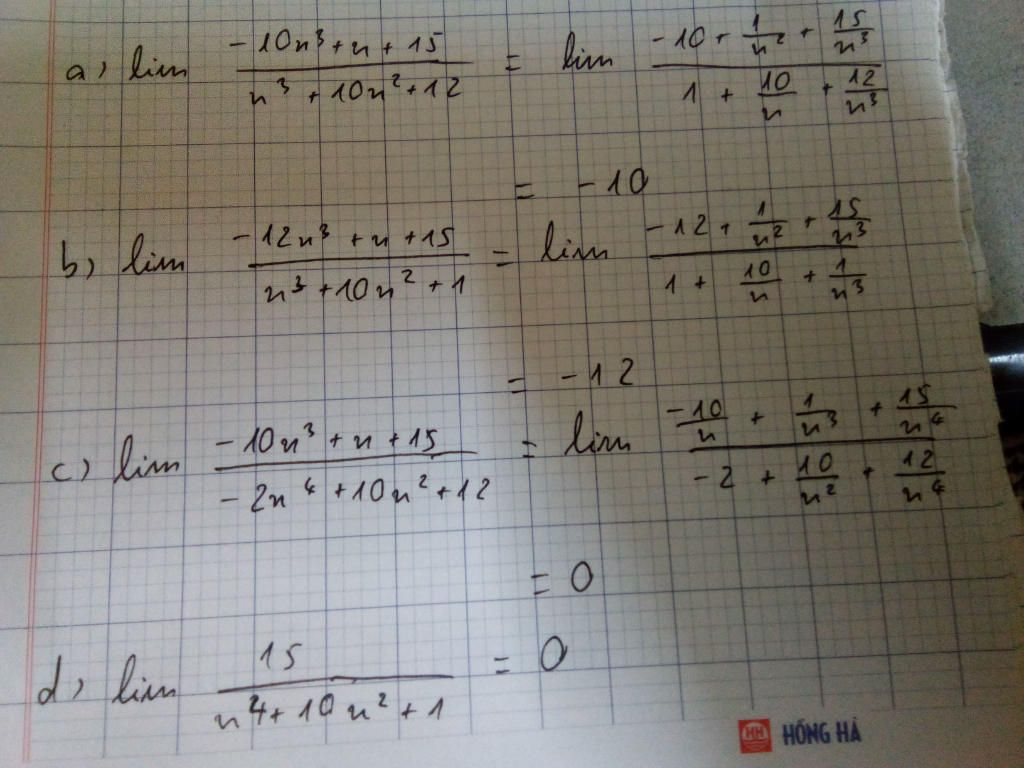 a) lim (-10n³ + n + 15)/(n³ + 10n² + 12) = lim (-10 + 1/n² + 15/n³)/(1 + 10/n + 12/n³)
= -10
b) lim (-12n³ + n + 15)/(n³ + 10n² + 1) = lim (-12 + 1/n² + 15/n³)/(1 + 10/n + 1/n³)
= -12
c) lim (-10n³ + n + 15)/(-2n⁴ + 10n² + 12) = lim (-10/n + 1/n³ + 15/n⁴)/(-2 + 10/n² + 12/n⁴)
= 0
d) lim 15/(n⁴ + 10n² + 1) = 0
HH HỒNG HÀ